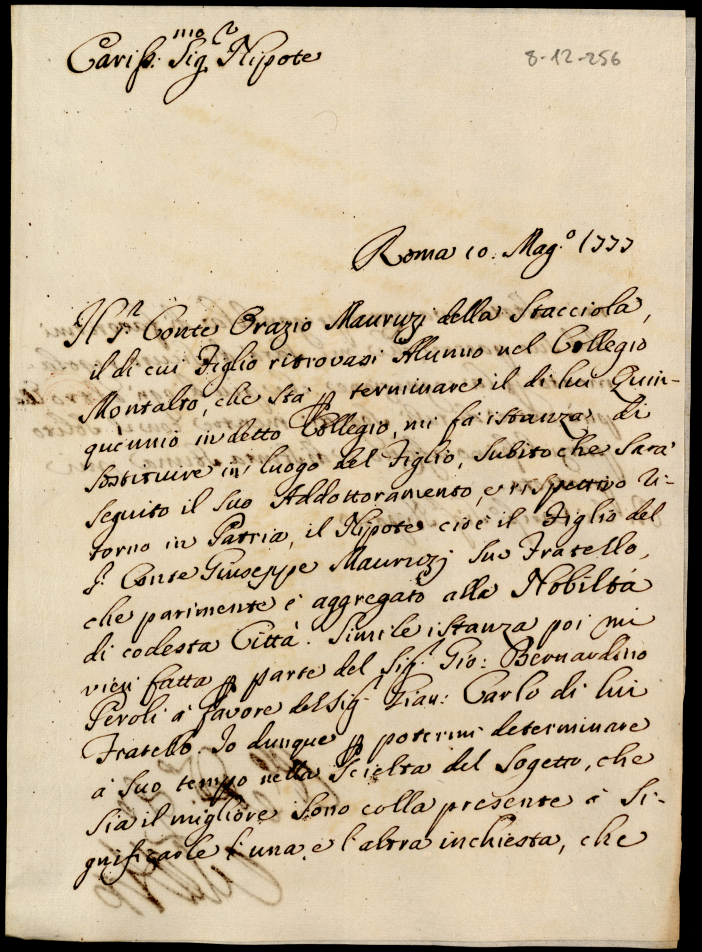 Cariss:mo Sigr Nipote
8-12-256
Roma 10. Mag.o 1777
Il Sr Conte Orazio Mauruzj della Stacciola,
il di cui Figlio ritrovasi Alunno nel Collegio
Montalto, che stà p terminare il di lui Quin-
quennio in detto Collegio, mi fa istanza di
sostituire in luogo del Figlio, subito che sarà
seguito il suo Addottoramento, e rispettivo ri-
torno in Patria, il Nipote cioè il Figlio del
Sr Conte Giuseppe Mauruzj suo Fratello,
che parimente è aggregato alla Nobiltà
di codesta Città. Simile istanza poi mi
vien fatta p parte del Sigr Gio: Bernardino
Peroli à favore del Sigr Gian: Carlo di lui
Fratello. Io dunque p potermi determinare
à suo tempo nella scielta del Sogetto, che
sia il migliore sono colla presente à si-
gnificarle l'una, e l'altra inchiesta, che